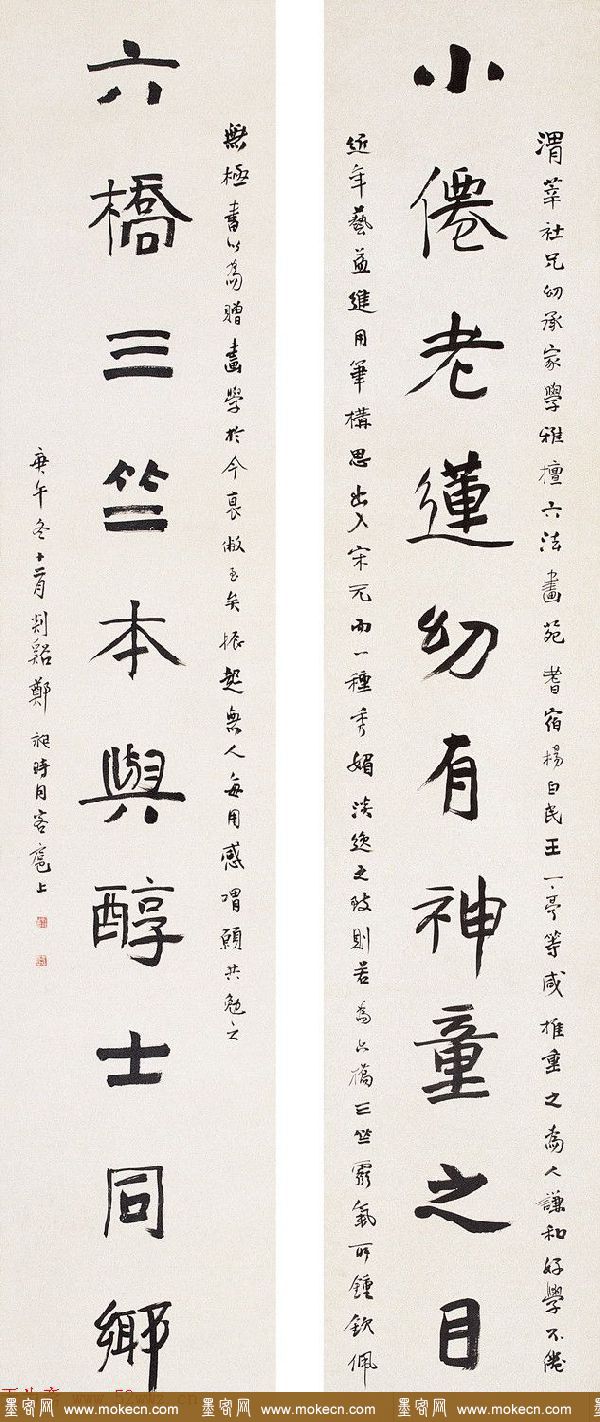 渭莘社兄幼承家學雅擅六法畫苑耆宿楊白民王一亭等咸推重之為人謙和好學不倦
小僊老蓮幼有神童之目
近年藝益進用筆構思出入宋元而一種秀媚淡逸之致則若為六橋三竺靈氣所鍾欽佩
無極書以為贈畫學於今衰敝至矣振起無人每用感喟願共勉之
六橋三竺本與醇士同鄉
庚午冬十二月剡谿鄭昶時同客滬上
墨客网 www.mokecn.com 墨客网 www.mokecn.com 墨客网 www.mokecn.com